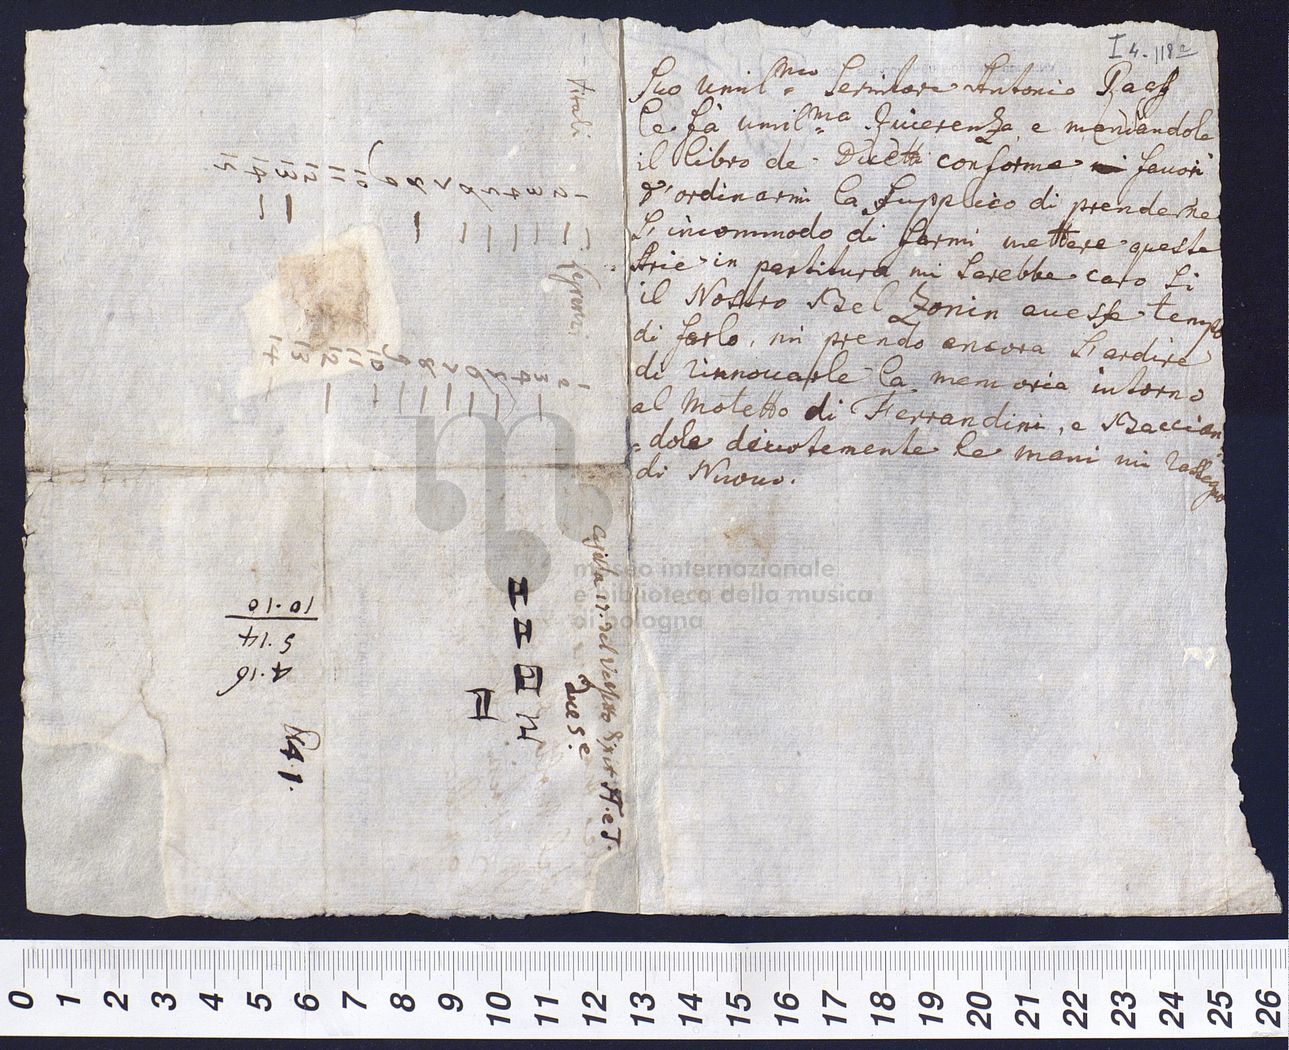 I 4. 118a
Suo umil.mo Servitore Antonio Raaff
le fà umil.ma riverenza e mandandole
il libro de Duetti conforme mi favorì
d'ordinarmi la supplico di prenderne
l'incommodo di farmi mettere queste
Arie in partitura mi sarebbe caro si
il Nostro Bel Zonin avesse tempo
di farlo, mi prendo ancora l'ardire
di rinnovarle la memoria intorno
al Motetto di Ferrandini, e Baccian
=dole divotemente le mani mi rassegno
di Nuovo.
Vitali
1 2 3 4 5 6 7 8 9 10 11 12 13 14 15
1 2 3 4 5 6 7 8 9 10 11 12 13 14
4.16
5.14
10.10
museo internazionale
e biblioteca della musica
di bologna
0 1 2 3 4 5 6 7 8 9 10 11 12 13 14 15 16 17 18 19 20 21 22 23 24 25 26